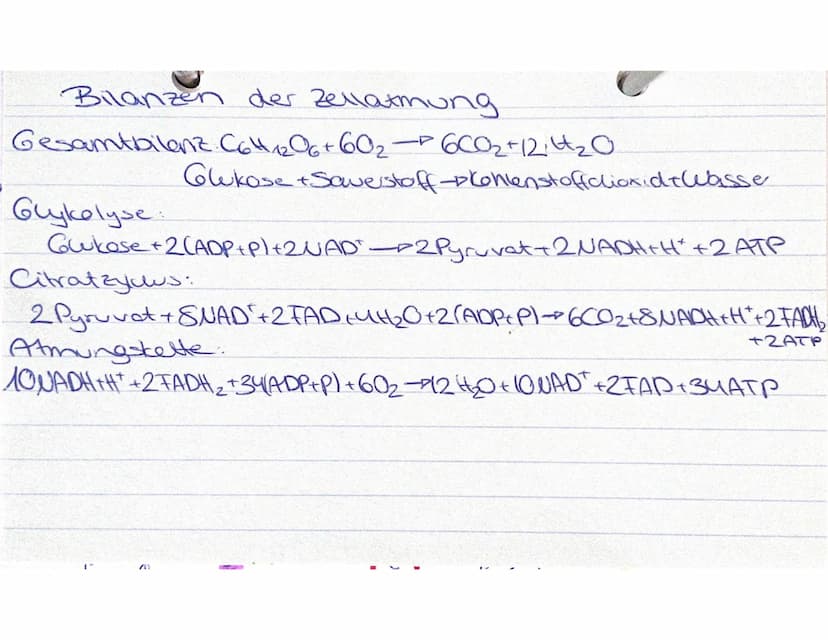 Bilanzen der Zellatmung
Gesamtbilanz: C6H12O6+6O2→6CO2+12H2O
Glukose+Sauerstoff→Kohlenstoffdioxid+Wasse
Glykolyse:
Glukose+2(ADP+P)+2NAD⁺→2Pyruvat+2NADH+H⁺+2ATP
Citratzyklus:
2Pyruvat+8NAD⁺+2FAD+4H2O+2(ADP+P)→6CO2+8NADH+H⁺+2FADH2
+2ATP
Atmungskette:
10NADH+H⁺+2FADH2+34(ADP+P)+6O2→12H2O+10NAD⁺+2FAD+34ATP